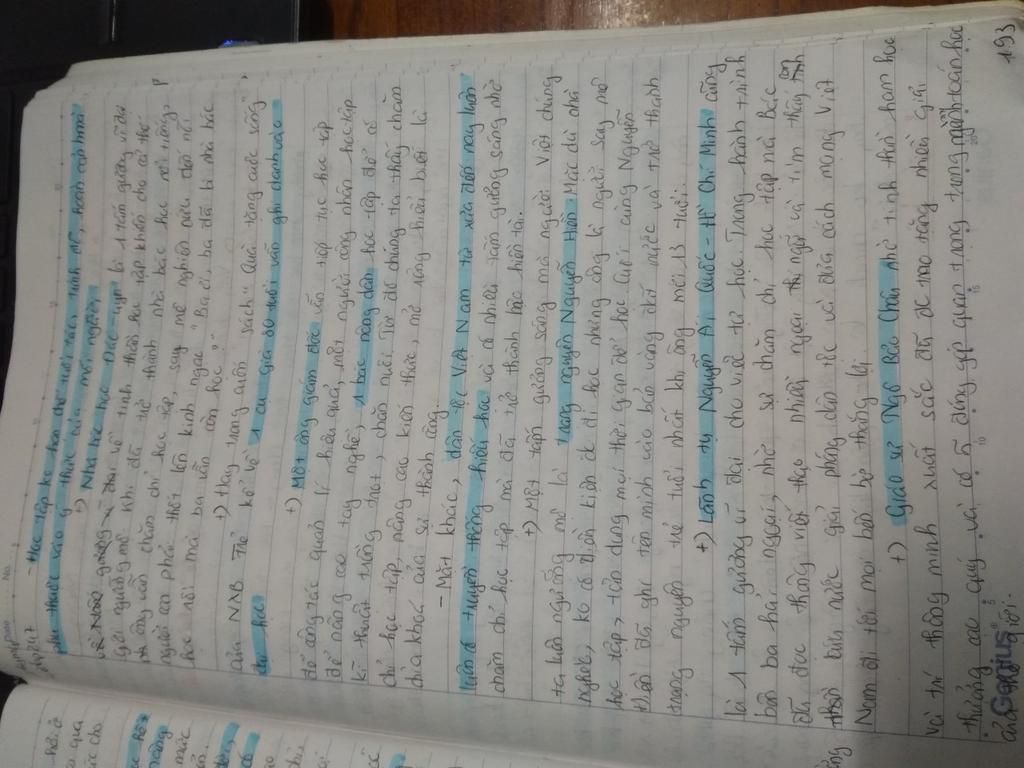 - Học tập ko hạn chế tuổi tác, trình độ, hoàn cảnh mà
phụ thuộc vào ý thức của mỗi người.
+) Nhà bác học Đác-uyn là 1 tấm gương vĩ đại
về tinh thần học tập khiến cho cả thế
giới ngưỡng mộ. Khi đã trở thành nhà bác học nổi tiếng,
ông vẫn chăm chỉ học tập, say mê nghiên cứu đến nỗi
người con phải thốt lên kinh ngạc "Ba ơi, ba đã là nhà bác
học rồi mà ba vẫn còn học?"
+) Hay trong cuốn sách "Quà tặng cuộc sống",
của NXB Trẻ kể về 1 cụ già 80 tuổi vẫn ghi danh vào
đại học.
+) Một ông giám đốc vẫn tiếp tục học tập
để công tác quản lí hiệu quả, một người công nhân học tập
để nâng cao tay nghề, 1 bác nông dân học tập để có
kĩ thuật trồng trọt, chăn nuôi. Từ đó chúng ta thấy chăm
chỉ học tập, nâng cao kiến thức, mở rộng hiểu biết là
chìa khoá của sự thành công.
- Mặt khác, dân tộc Việt Nam ta xưa đến nay luôn
luôn có truyền thống hiếu học và có nhiều tấm gương sáng nhờ
chăm chỉ học tập mà đã trở thành bậc hiền tài.
+) Một tấm gương sáng mà người Việt chúng
ta luôn ngưỡng mộ là trạng nguyên Nguyễn Hiền. Mặc dù nhà
nghèo, ko có điều kiện đc đi học nhưng ông là người say mê
học tập, tận dụng mọi thời gian để học. Cuối cùng Nguyễn
Hiền đã ghi tên mình vào bảng vàng đất nước và trở thành
trạng nguyên trẻ tuổi nhất khi ông mới 13 tuổi.
+) Lãnh tụ Nguyễn Ái Quốc - Hồ Chí Minh cũng
là 1 tấm gương vĩ đại cho việc tự học. Trong hành trình
bôn ba hải ngoại, nhờ sự chăm chỉ học tập mà Bác
đã đọc thông viết thạo nhiều ngoại ngữ và tìm thấy con
đường cứu nước giải phóng dân tộc và đưa cách mạng Việt
Nam đi tới mọi bến bờ thắng lợi.
+) Giáo sư Ngô Bảo Châu nhờ tinh thần ham học
và trí thông minh xuất sắc đã đc trao tặng nhiều giải
thưởng cao quý và có n~ đóng góp quan trọng trong ngành toán học
của thế giới.
Genius
193